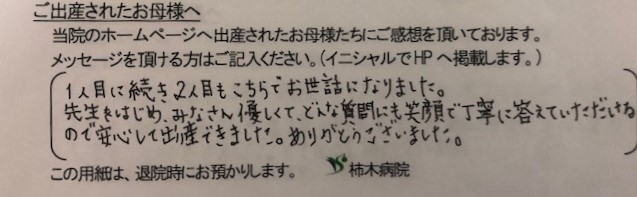 ご出産されたお母様へ
当院のホームページへ出産されたお母様たちにご感想を頂いております。
メッセージを頂ける方はご記入ください。(イニシャルでHPへ掲載します。)
1人目に続き2人目もこちらでお世話になりました。
先生をはじめ、みなさん優しくて、どんな質問にも笑顔で丁寧に答えていただける
ので安心して出産できました。ありがとうございました。
この用紙は、退院時にお預かりします。 柿木病院